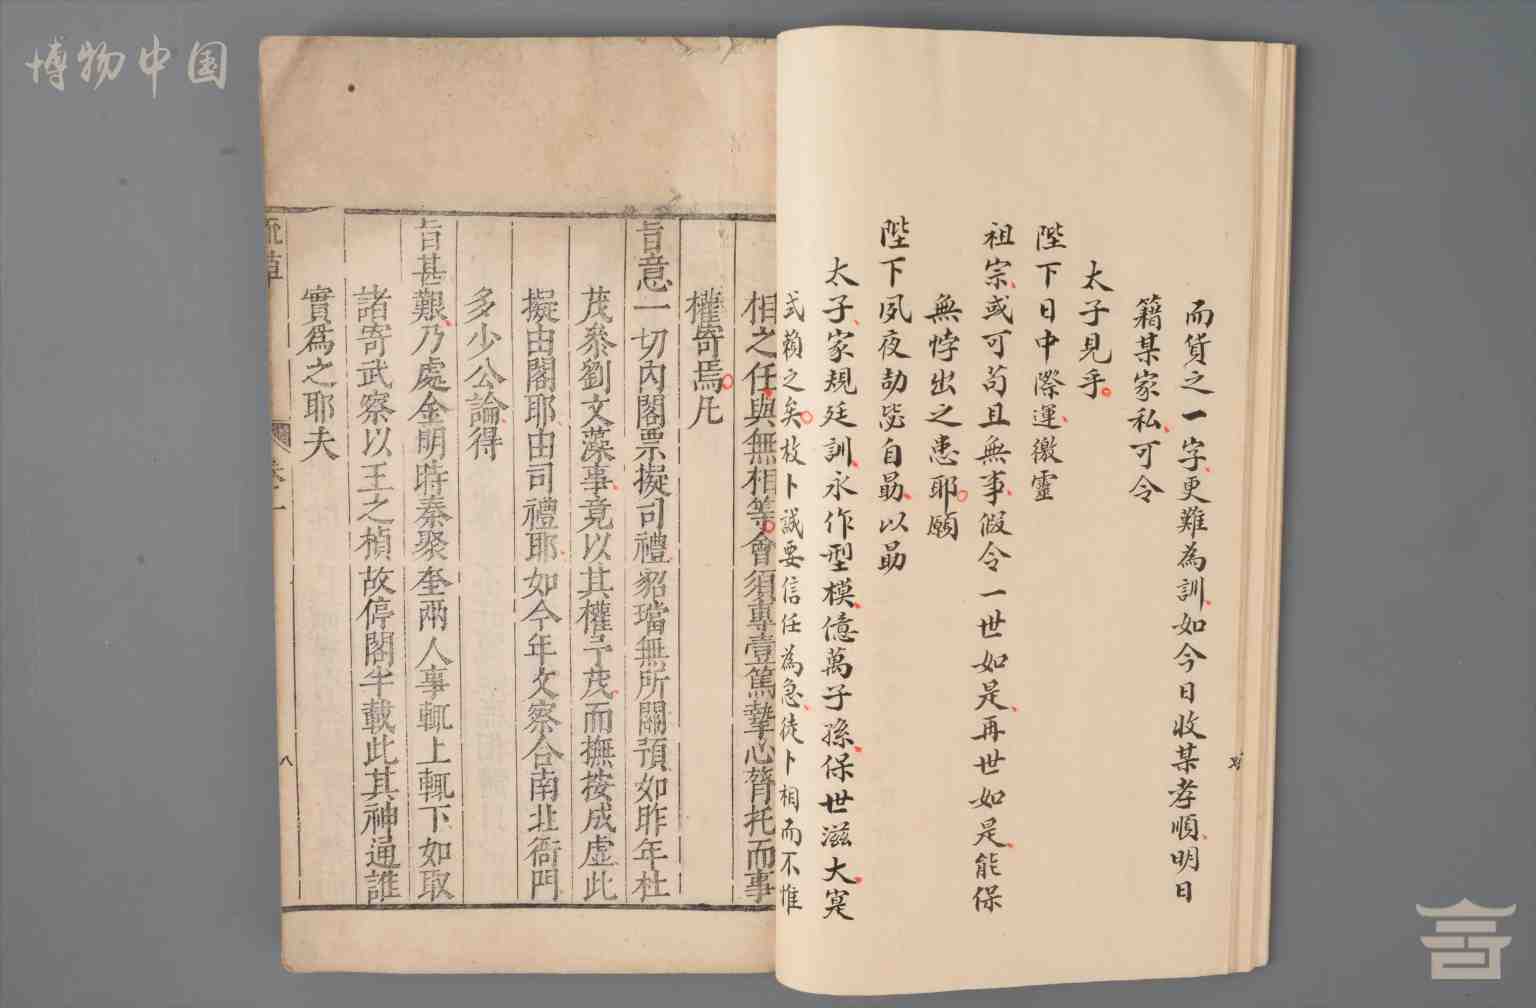 博物中国
而貨之一字更難為訓如今日收某孝順明日
籍某家私可令
太子見乎
陛下日中際運徼靈
祖宗或可苟且無事假令一世如是再世如是能保
無悖出之患耶願
陛下夙夜劼毖自勗以勗
太子家規廷訓永作型模億萬子孫保世滋大寔
式賴之矣枚卜誠要信任為急徒卜相而不惟
相之任與無相等會須專壹篤摯心膂托而事
權寄焉凡
旨意一切內閣票擬司禮貂璫無所關預如昨年杜
茂叅劉文藻事竟以其權予茂而撫按成虛此
擬由閣耶由司禮耶如今年文察合南北衙門
多少公論得
旨甚艱乃處金明時秦聚奎兩人事輒上輒下如取
諸寄武察以王之楨故停閣半載此其神通誰
實為之耶夫
疏草
卷一
八